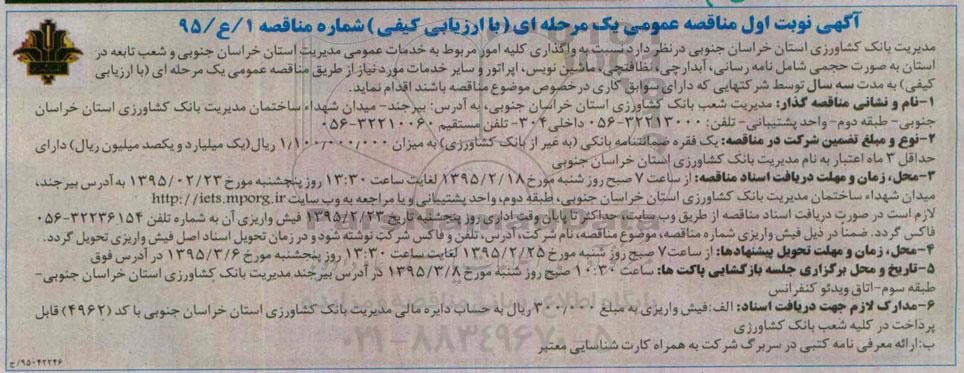 آگهی نوبت اول مناقصه عمومی یک مرحله ای (با ارزیابی کیفی) شماره مناقصه ۱/ع/۹۵
مدیریت بانک کشاورزی استان خراسان جنوبی در نظر دارد نسبت به واگذاری کلیه امور مربوط به خدمات عمومی مدیریت استان خراسان جنوبی و شعب تابعه در
استان به صورت حجمی شامل نامه رسانی، آبدارچی، نظافتچی، ماشین نویس، اپراتور و سایر خدمات مورد نیاز از طریق مناقصه عمومی یک مرحله ای (با ارزیابی
کیفی) به مدت سه سال توسط شرکتهایی که دارای سوابق کاری درخصوص موضوع مناقصه باشند اقدام نماید.
۱-نام و نشانی مناقصه گذار: مدیریت شعب بانک کشاورزی استان خراسان جنوبی، به آدرس: بیرجند- میدان شهداء ساختمان مدیریت بانک کشاورزی استان خراسان
جنوبی- طبقه دوم- واحد پشتیبانی- تلفن: ۳۲۲۱۳۰۰۰-۰۵۶ داخلی ۳۰۴- تلفن مستقیم ۳۲۲۱۰۰۶۰-۰۵۶
۲-نوع و مبلغ تضمین شرکت در مناقصه: یک فقره ضمانتنامه بانکی (به غیر از بانک کشاورزی) به میزان ۱/۱۰۰/۰۰۰/۰۰۰ ریال (یک میلیارد و یکصد میلیون ریال) دارای
حداقل ۳ ماه اعتبار به نام مدیریت بانک کشاورزی استان خراسان جنوبی
۳-محل، زمان و مهلت دریافت اسناد مناقصه: از ساعت ۷ صبح روز شنبه مورخ ۱۳۹۵/۲/۱۸ لغایت ساعت ۱۳:۳۰ روز پنجشنبه مورخ ۱۳۹۵/۰۲/۲۳ به آدرس بیرجند،
میدان شهداء ساختمان مدیریت بانک کشاورزی استان خراسان جنوبی، طبقه دوم، واحد پشتیبانی و یا مراجعه به وب سایت http://iets.mporg.ir
لازم است در صورت دریافت اسناد مناقصه از طریق وب سایت، حداکثر تا پایان وقت اداری روز پنجشنبه تاریخ ۱۳۹۵/۲/۲۳ فیش واریزی آن به شماره تلفن ۳۲۲۳۶۱۵۴-۰۵۶
فاکس گردد. ضمناً در ذیل فیش واریزی شماره مناقصه، موضوع مناقصه، نام شرکت، آدرس، تلفن و فاکس شرکت نوشته شود و در زمان تحویل اسناد اصل فیش واریزی تحویل گردد.
۴-محل، زمان و مهلت تحویل پیشنهادها: از ساعت ۷ صبح روز شنبه مورخ ۱۳۹۵/۲/۲۵ لغایت ساعت ۱۳:۳۰ روز پنجشنبه مورخ ۱۳۹۵/۳/۶ در آدرس فوق
۵-تاریخ و محل برگزاری جلسه بازگشایی پاکت ها: ساعت ۱۰:۳۰ صبح روز شنبه مورخ ۱۳۹۵/۳/۸ در آدرس بیرجند مدیریت بانک کشاورزی استان خراسان جنوبی-
طبقه سوم-اتاق ویدئو کنفرانس
۶-مدارک لازم جهت دریافت اسناد: الف: فیش واریزی به مبلغ ۳۰۰/۰۰۰ ریال به حساب دایره مالی مدیریت بانک کشاورزی استان خراسان جنوبی با کد (۴۹۶۲) قابل
پرداخت در کلیه شعب بانک کشاورزی
ب: ارائه معرفی نامه کتبی در سربرگ شرکت به همراه کارت شناسایی معتبر
۹۵۰۴۲۲۴۶/ح
۰۲۱-۸۸۳۴۹۶۷۰-۵